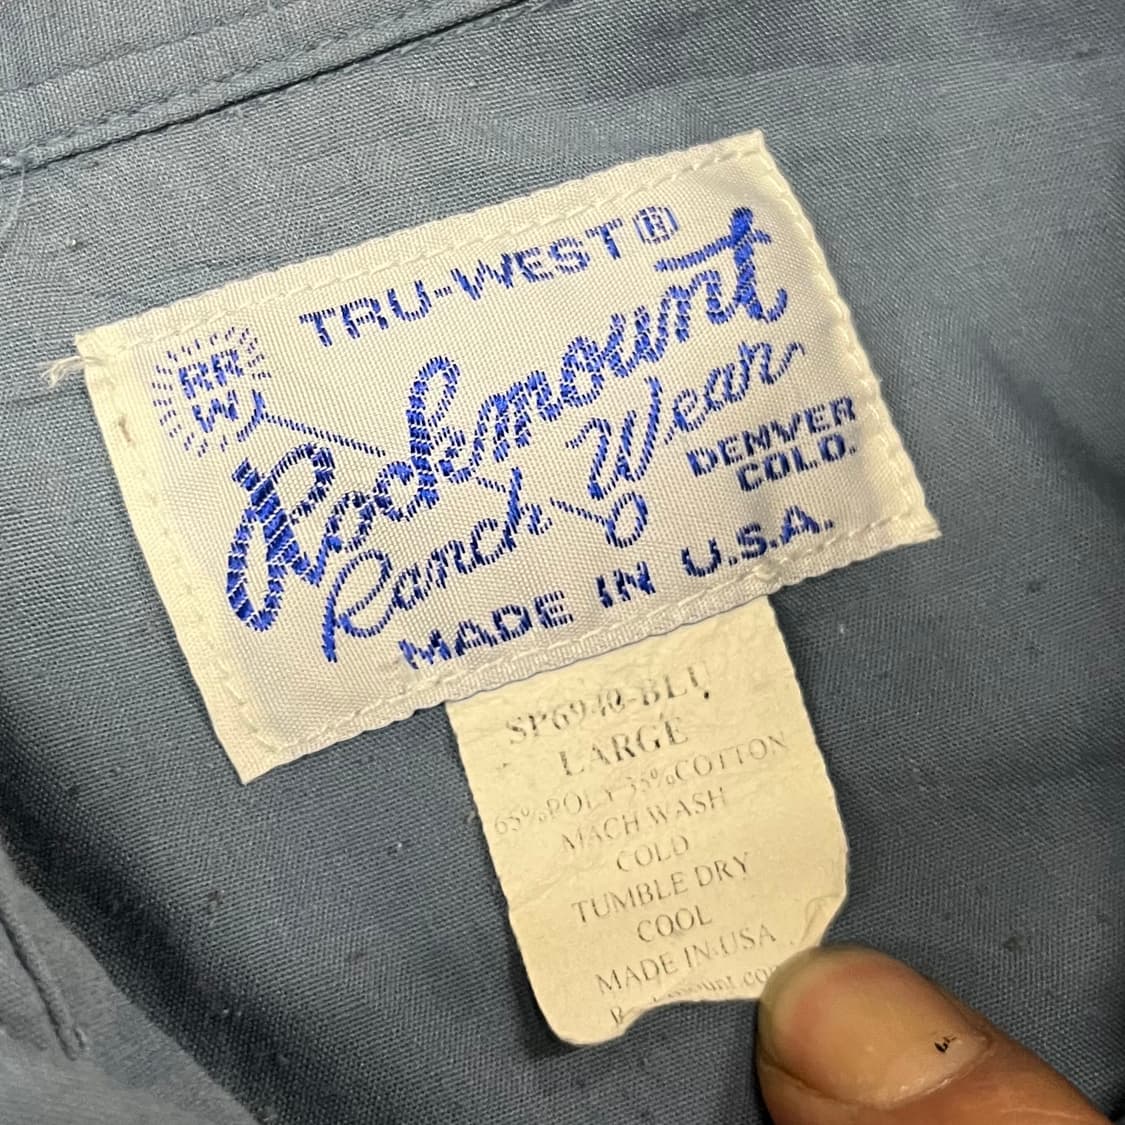 TRU-WEST®
RR
W
Rockmount
Ranch Wear
DENVER
COLO.
MADE IN U.S.A.
SP6940-BLU
LARGE
65%POLY 35%COTTON
MACH WASH
COLD
TUMBLE DRY
COOL
MADE IN USA
Rockmount.com